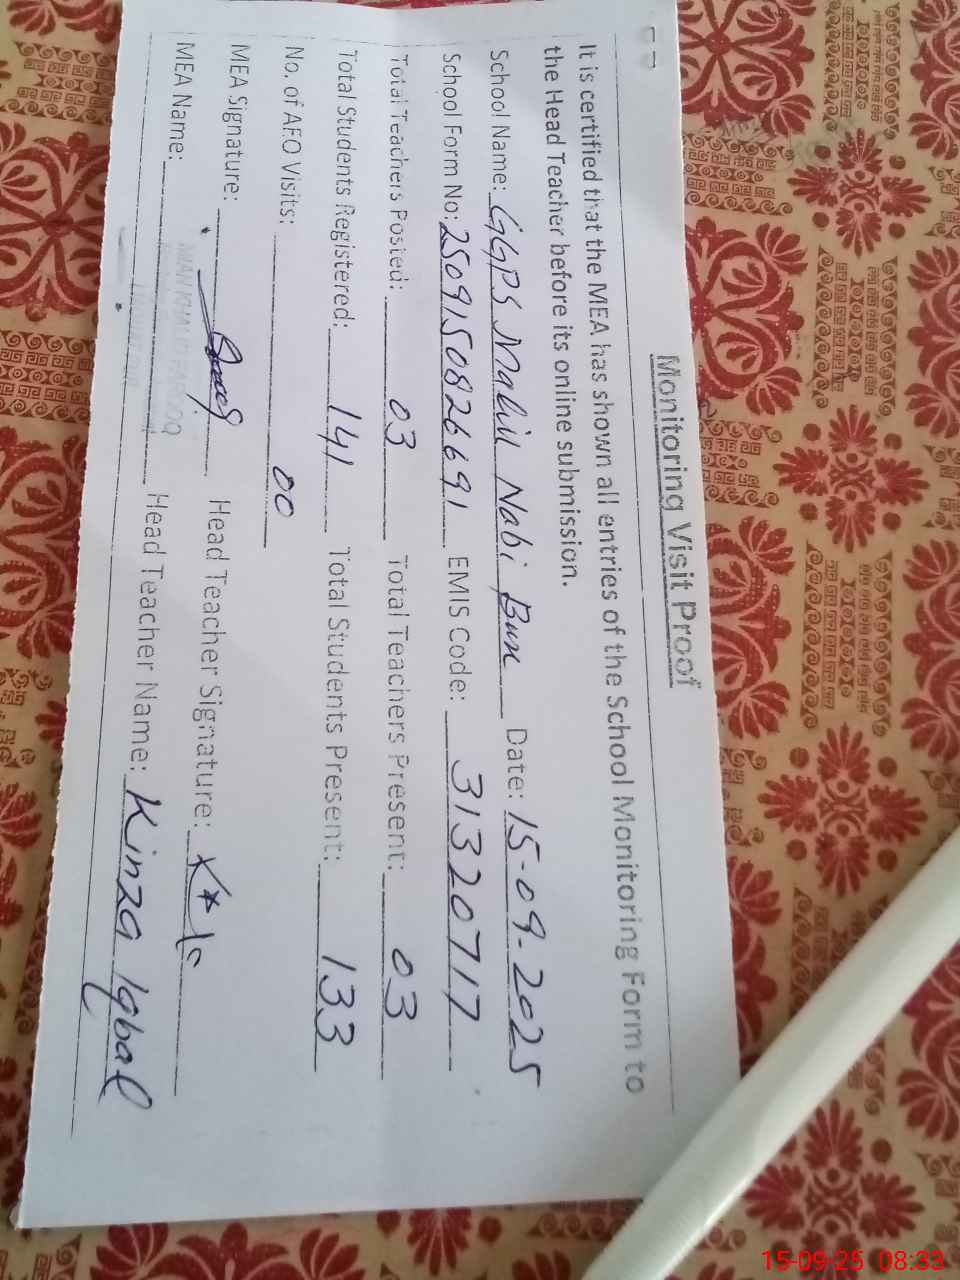 Monitoring Visit Proof
It is certified that the MEA has shown all entries of the School Monitoring Form to
the Head Teacher before its online submission.
School Name: GGPS Mahil Nabi Bux Date: 15-09-2025
School Form No: 2509150826691 EMIS Code: 31320717
Total Teachers Posted: 03 Total Teachers Present: 03
Total Students Registered: 141 Total Students Present: 133
No. of AEO Visits: 00
MEA Signature: Head Teacher Signature:
MEA Name: Head Teacher Name: Kinza Iqbal
15-09-25 08:33